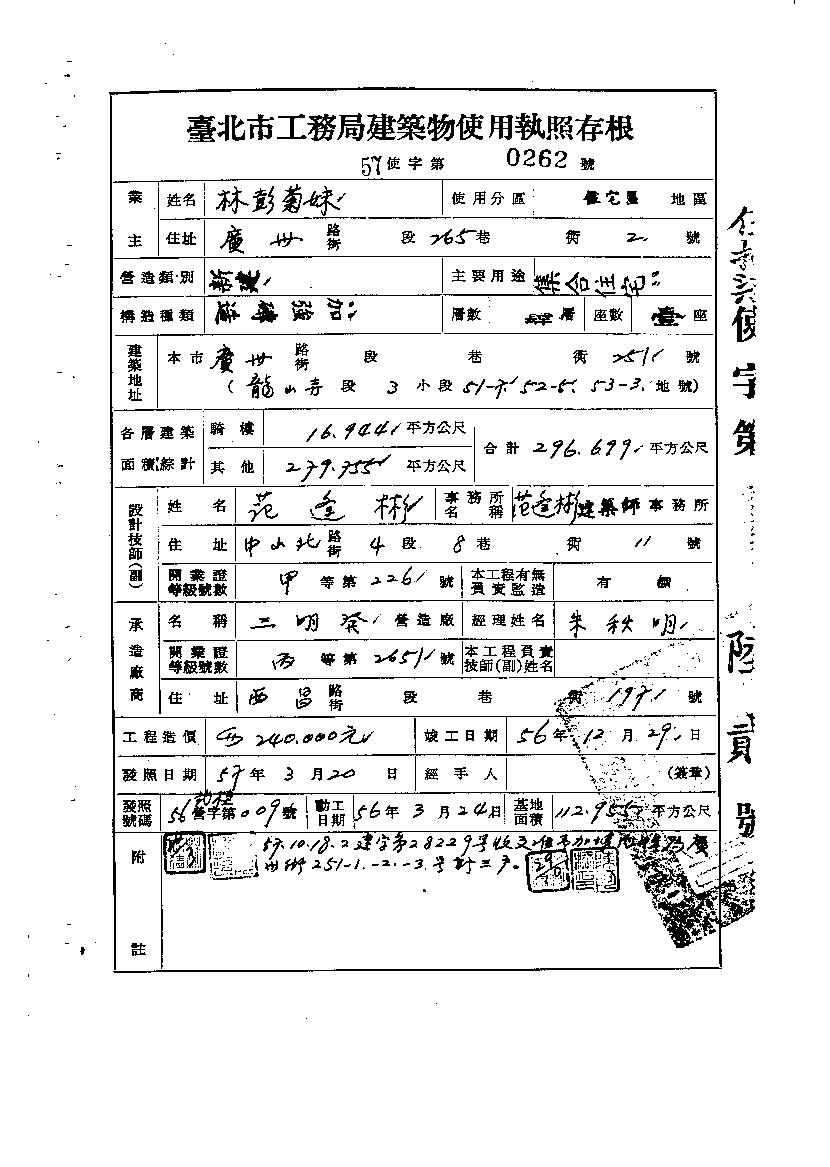 臺北市工務局建築物使用執照存根
57使字第 0262 號
業主 姓名 林彭菊妹 使用分區 住宅區 地區
住址 廣州 路街 段 265 巷 衖 2 號
營造類別 新建 主要用途 集合住宅
構造種類 加強磚造 層數 肆層 座數 壹座
建築地址 本市 廣州 路街 段 巷 衖 251 號
(龍山寺段 3 小段 52-5 53-3 地號)
各層建築面積綜計 騎樓 16.944 平方公尺 合計 296.699 平方公尺
其他 279.755 平方公尺
設計技師(副) 姓名 范逢彬 事務所名稱 范逢彬建築師事務所
住址 中山北 路街 4 段 8 巷 衖 11 號
開業證等級號數 甲 等第 2261 號 本工程有無負責監造 有
承造廠商 名稱 三明 營造廠 經理姓名 朱秋明
開業證等級號數 丙 等第 2651 號 本工程負責技師(副)姓名
住址 西昌 路街 段 巷 衖 號
工程造價 240.000元 竣工日期 56年 12月 29日
發照日期 57年 3月 20日 經手人 (簽章)
發照號碼 56 營字第 009 號 動工日期 56年 3月 24日 基地面積 112.955 平方公尺
附註 57.10.18.2建字第28229号收文
州街251-1.-2.-3.号計三戶。
使字第
陸貳號